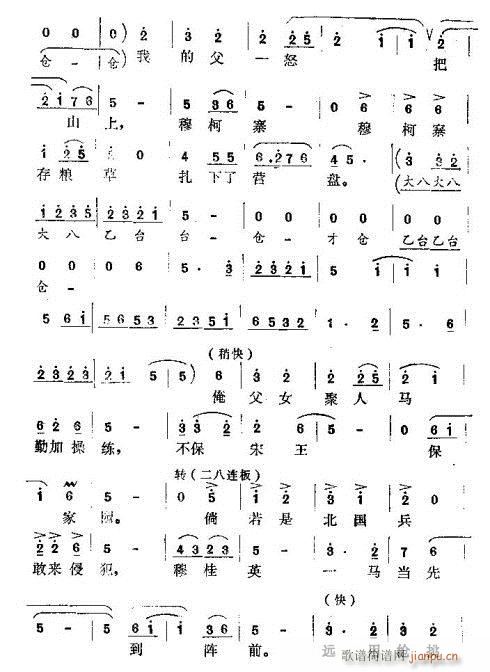 0 0 | 0 2 | 3 3 | 2 2 5 | 2 i i | 2
仓 - 仓 我 的 父 一 怒 把
2 i 7 6 | 5 - | 5 3 6 | 5 - | 0 6 | 6 3
山上, 穆柯寨 穆柯寨
i 2 5 | 2 0 | 4 5 5 | 6. 2 7 6 | 4 5. | (3 3 2
存粮草 扎下了营盘。 (大八大八
1 2 3 5 | 2 3 2 1 | 0 0 | 0 0 | 0 0 | 0 0
大八乙台 台 仓 - 才仓 乙台乙台
0 0 | 0 6 | 5. 3 | 2 3 2 1 | 5 i | i i
仓 -
5 6 i | 5 6 5 3 | 2 3 5 i | 6 5 3 2 | 1. 2 | 5. 6
(稍快)
2 3 2 3 | 2 i | 5 5) | 0 6 | 3 2 | 2 2 5 | 2 i
俺父女聚人马
6 2 6 | 5 - | 0 3 | 3 i | 2 - | 0 6 i
勤加操练, 不保宋王 保
转(二八连板)
i 6 | 5 - | 0 5 | 3 2 | 5 3 | 2 0
家园。 倘若是北国兵
2 2 6 | 5 - | 4 3 2 3 | 5 - | 3. 2 | 7 6
敢来侵犯, 穆桂英 一马当先
(快)
5 - | 5 5 | 6 i | 5 - | 0 5 | i 2
到阵前。 远用枪挑
歌谱简谱网
jianpu.cn